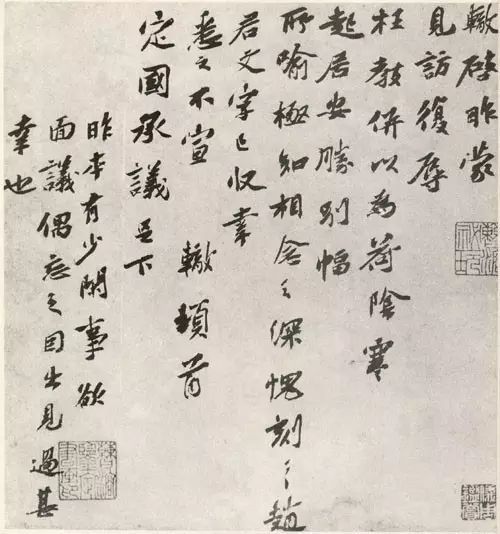 轍啓昨蒙
見訪復辱
枉教併以為荷陰寒
起居安勝別幅
所喻極知相念之深愧刻之趙
若文字已収幸
悉之不宣　轍頓首
定國承議足下
昨本有少閑事欲
面議偶忘之因出見過甚
幸也